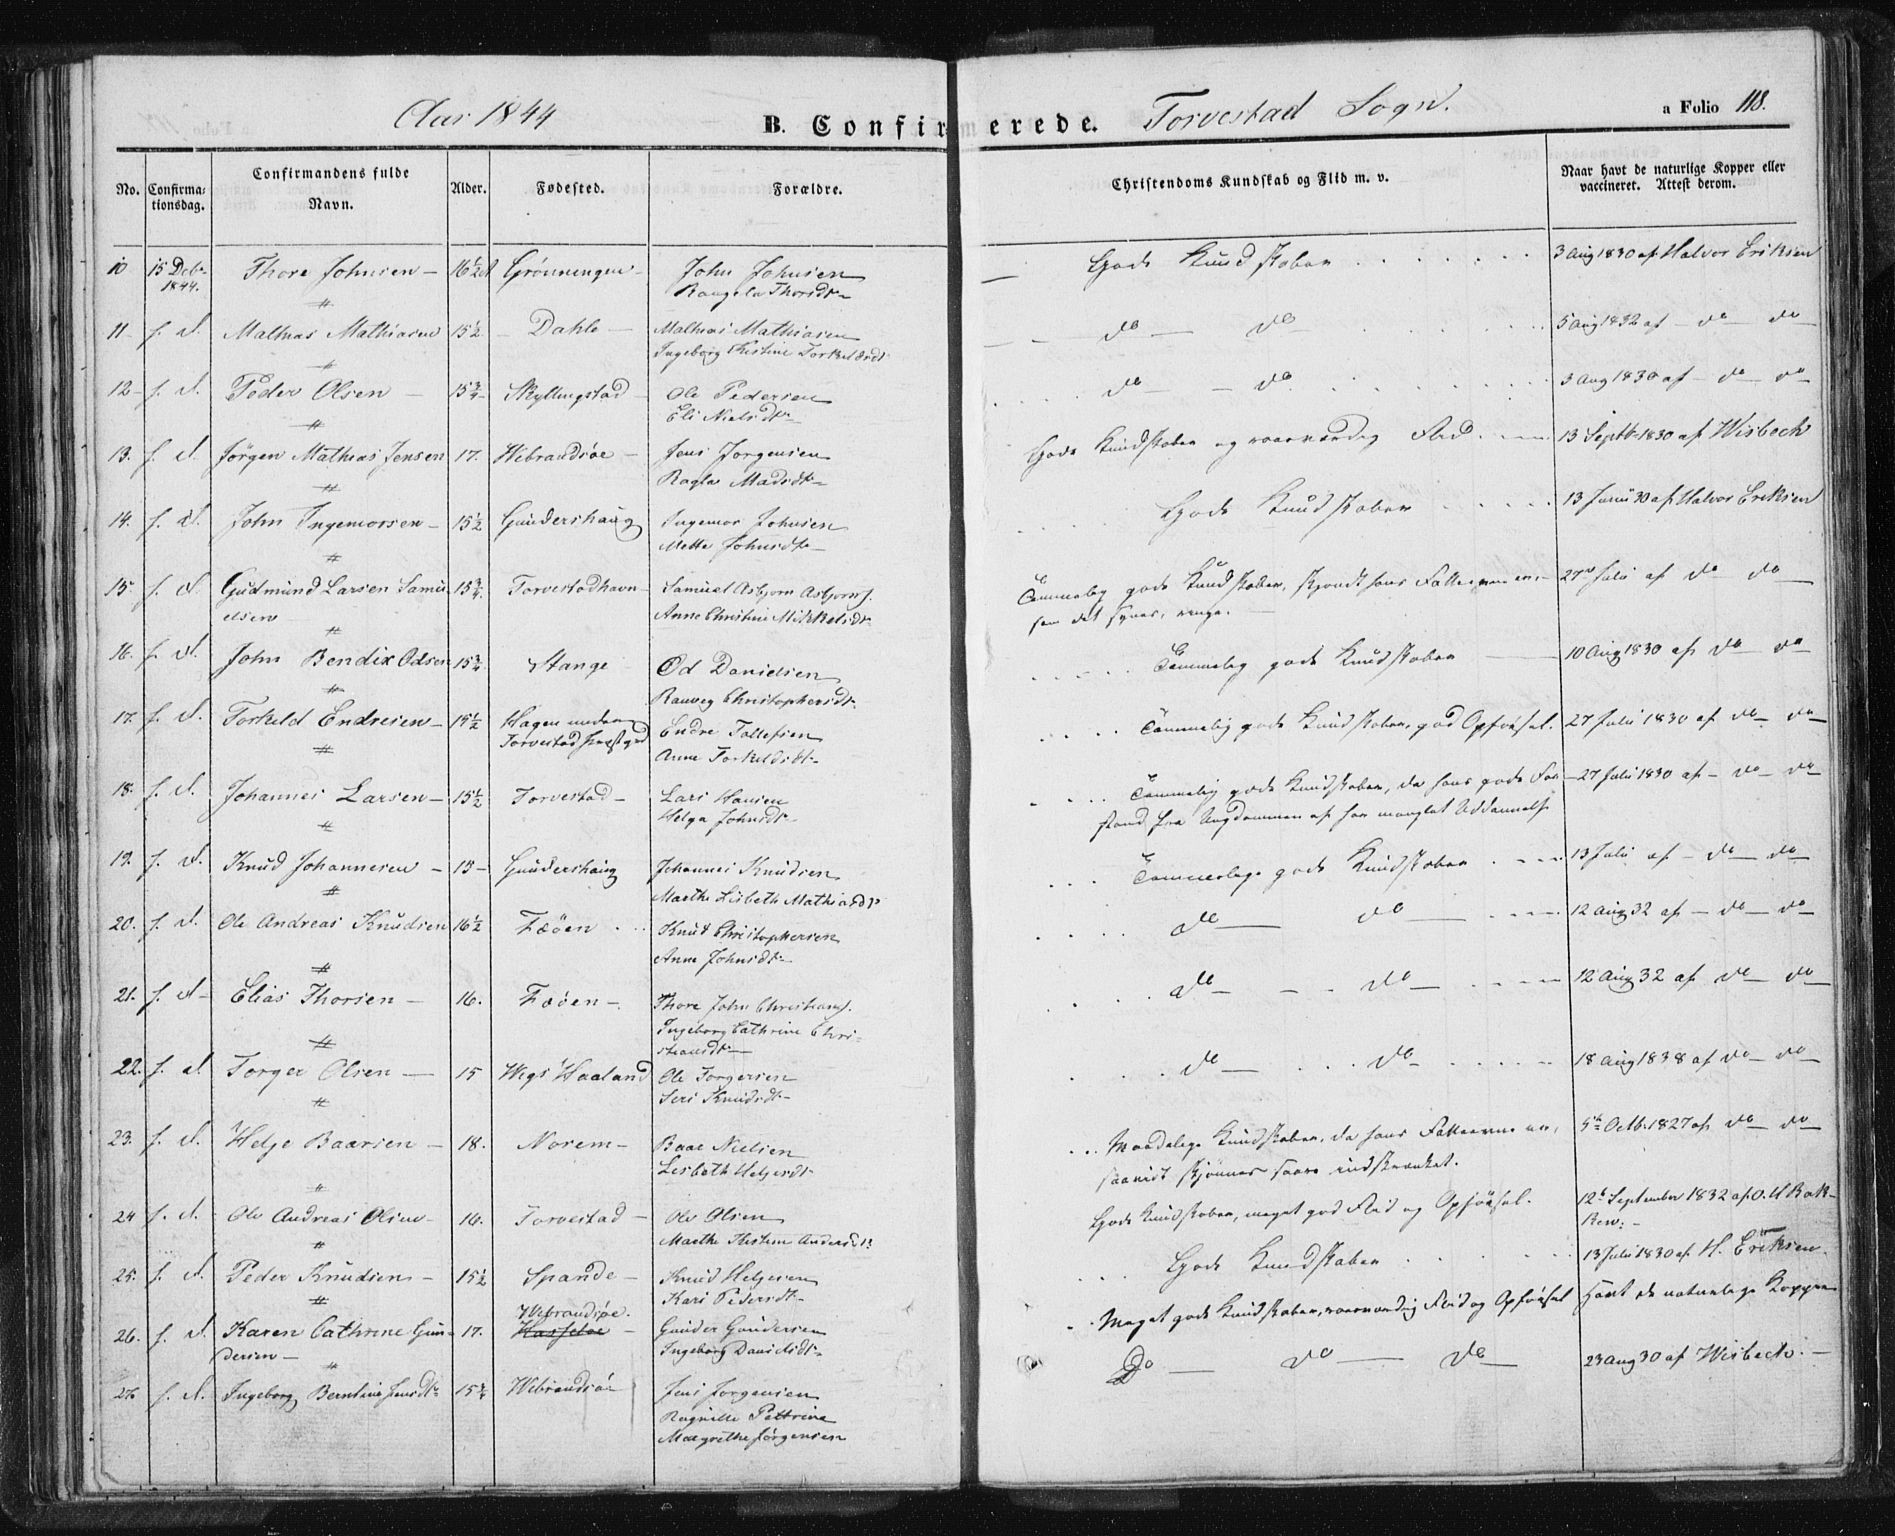 Aar 1844
B. Confirmerede. Torvestad Sogn. a Folio 118.
No. Confirmationsdag. Confirmandens fulde Navn. Alder. Fødested. Forældre. Christendoms Kundskab og Flid m. v. Naar havt de naturlige Kopper eller vaccineret. Attest derom.
10 15 Decbr 1844. Thore Johnsen 16½ Grönningen John Johnsen Gode Kundskaber 3 Aug 1830 af Halvor Eriksen
Thorsdtr
11 f. d. Mathias Mathiasen 15½ Dahle Mathias Mathiasen do do 5 Aug 1832 af do do
Ingeborg Kistine Torkeldsdtr
12 f. d. Peder Olsen 15¾ Skyllingstad Ole Pedersen do do 3 Aug 1830 af do do
Eli Nielsdtr
13. f. d. Jörgen Mathias Jensen 17. Wibrandsöe Jens Jorgensen Gode Kundskaber og roesværdig Flid 13 Septb 1830 af Wisbech
Ragla Madsdtr
14. f. d. John Ingemorsen 15½ Gundershaug Ingemor Johnsen Gode Kundskaber 13 Juni 30 af Halvor Eriksen
Mette Johnsdtr
15 f. d. Gudmund Larsen Samu 15¾ Torvestadhavn Samuel Asbjorn Asbjorns. Temmelig gode Kundskaber, skjöndt hans Fatteevne er, 27de Juli af do do
elsen Anne Christine Mikkelsdtr som det synes, ringe.
16. f. d. John Bendix Odsen 15¾ Stange Od Danielsen Temmelig gode Kundskaber 10 Aug 1830 af do do
Ranveg Christophersdtr
17. f. d. Torkeld Endresen 15½ Hagen under Endre Tollefsen Temmelig gode Kundskaber, god Opførsel. 27 Juli 1830 af do do
Torvestad Præstgrd Anne Torkeldsdtr
18. f. d. Johannes Larsen 15½ Torvestad Lars Hansen Temmelig gode Kundskaber, da hans gode For 27 Juli 1830 af do do
Helga Johnsdtr stand fra Ungdommen af har manglet Uddannelse
19. f. d. Knud Johannesen 15 Gundershaug Johannes Knudsen Temmelige gode Kundskaber 13 Juli af do do
Marthe Lisbeth Mathiasdtr
20. f. d. Ole Andreas Knudsen 16½ Fæöen Knud Christophersen do do 12 Aug 32 af do do
Anne Johnsdtr
21. f. d. Elias Thorsen 16. Fæöen Thore John Christians. do do 12 Aug 32 af do do
Ingeborg Cathrine Chri-
stiansdtr
22. f. d. Torger Olsen 15 Wigs Haaland Ole Torgersen do do 18 Aug 1838 af do do
Seri Knudsdtr
23. f. d. Helje Baarsen 18. Norem Baar Nielsen Maadelige Kundskaber, da hans Fatteevne er, 5te Octb. 1827 af do do
Lisbeth Heljesdtr saavidt skjönnes saare indskrænket.
24 f. d. Ole Andreas Olsen 16. Torvestad Ole Olsen Gode Kundskaber, meget god Flid og Opförsel. 12te September 1832 af O. H Bak-
Marthe Kistine Andersdtr ken.
25. f. d. Peder Knudsen 15½ Spande Knud Heljesen Gode Kundskaber 13 Juli 1830 af H. Eriksen.
Kari Pedersdtr
Wibrandsöe.
26. f. d. Karen Cathrine Gun- 17. Gunder Gundersen Meget gode Kundskaber, roesværdig Flid og Opförsel Havt de naturlige Kopper
dersen Ingeborg Danielsdtr
27 f. d. Ingeborg Berntine Jensdtr 15¾ Wibrandsöe Jens Jorgensen Do do do 23 Aug 30 af Wisbech.
Ragnille Pettrine
Margrethe Jörgensen